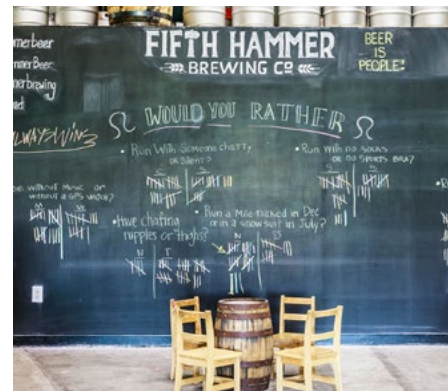 FIFTH HAMMER
BREWING CO
BEER
IS
PEOPLE!
merbeer
merBeer
merbrewing
LWAYSWINS
WOULD YOU RATHER
• Run With Someone chatty,
or Silent?
C S
• Run with no socks
or no Sports Bra?
S
without Music or
without a GPS watch?
M W
• Have chafing
nipples or Thighs?
N T
• Run a Mile naked in Dec
or in a snowsuit in July?
N S